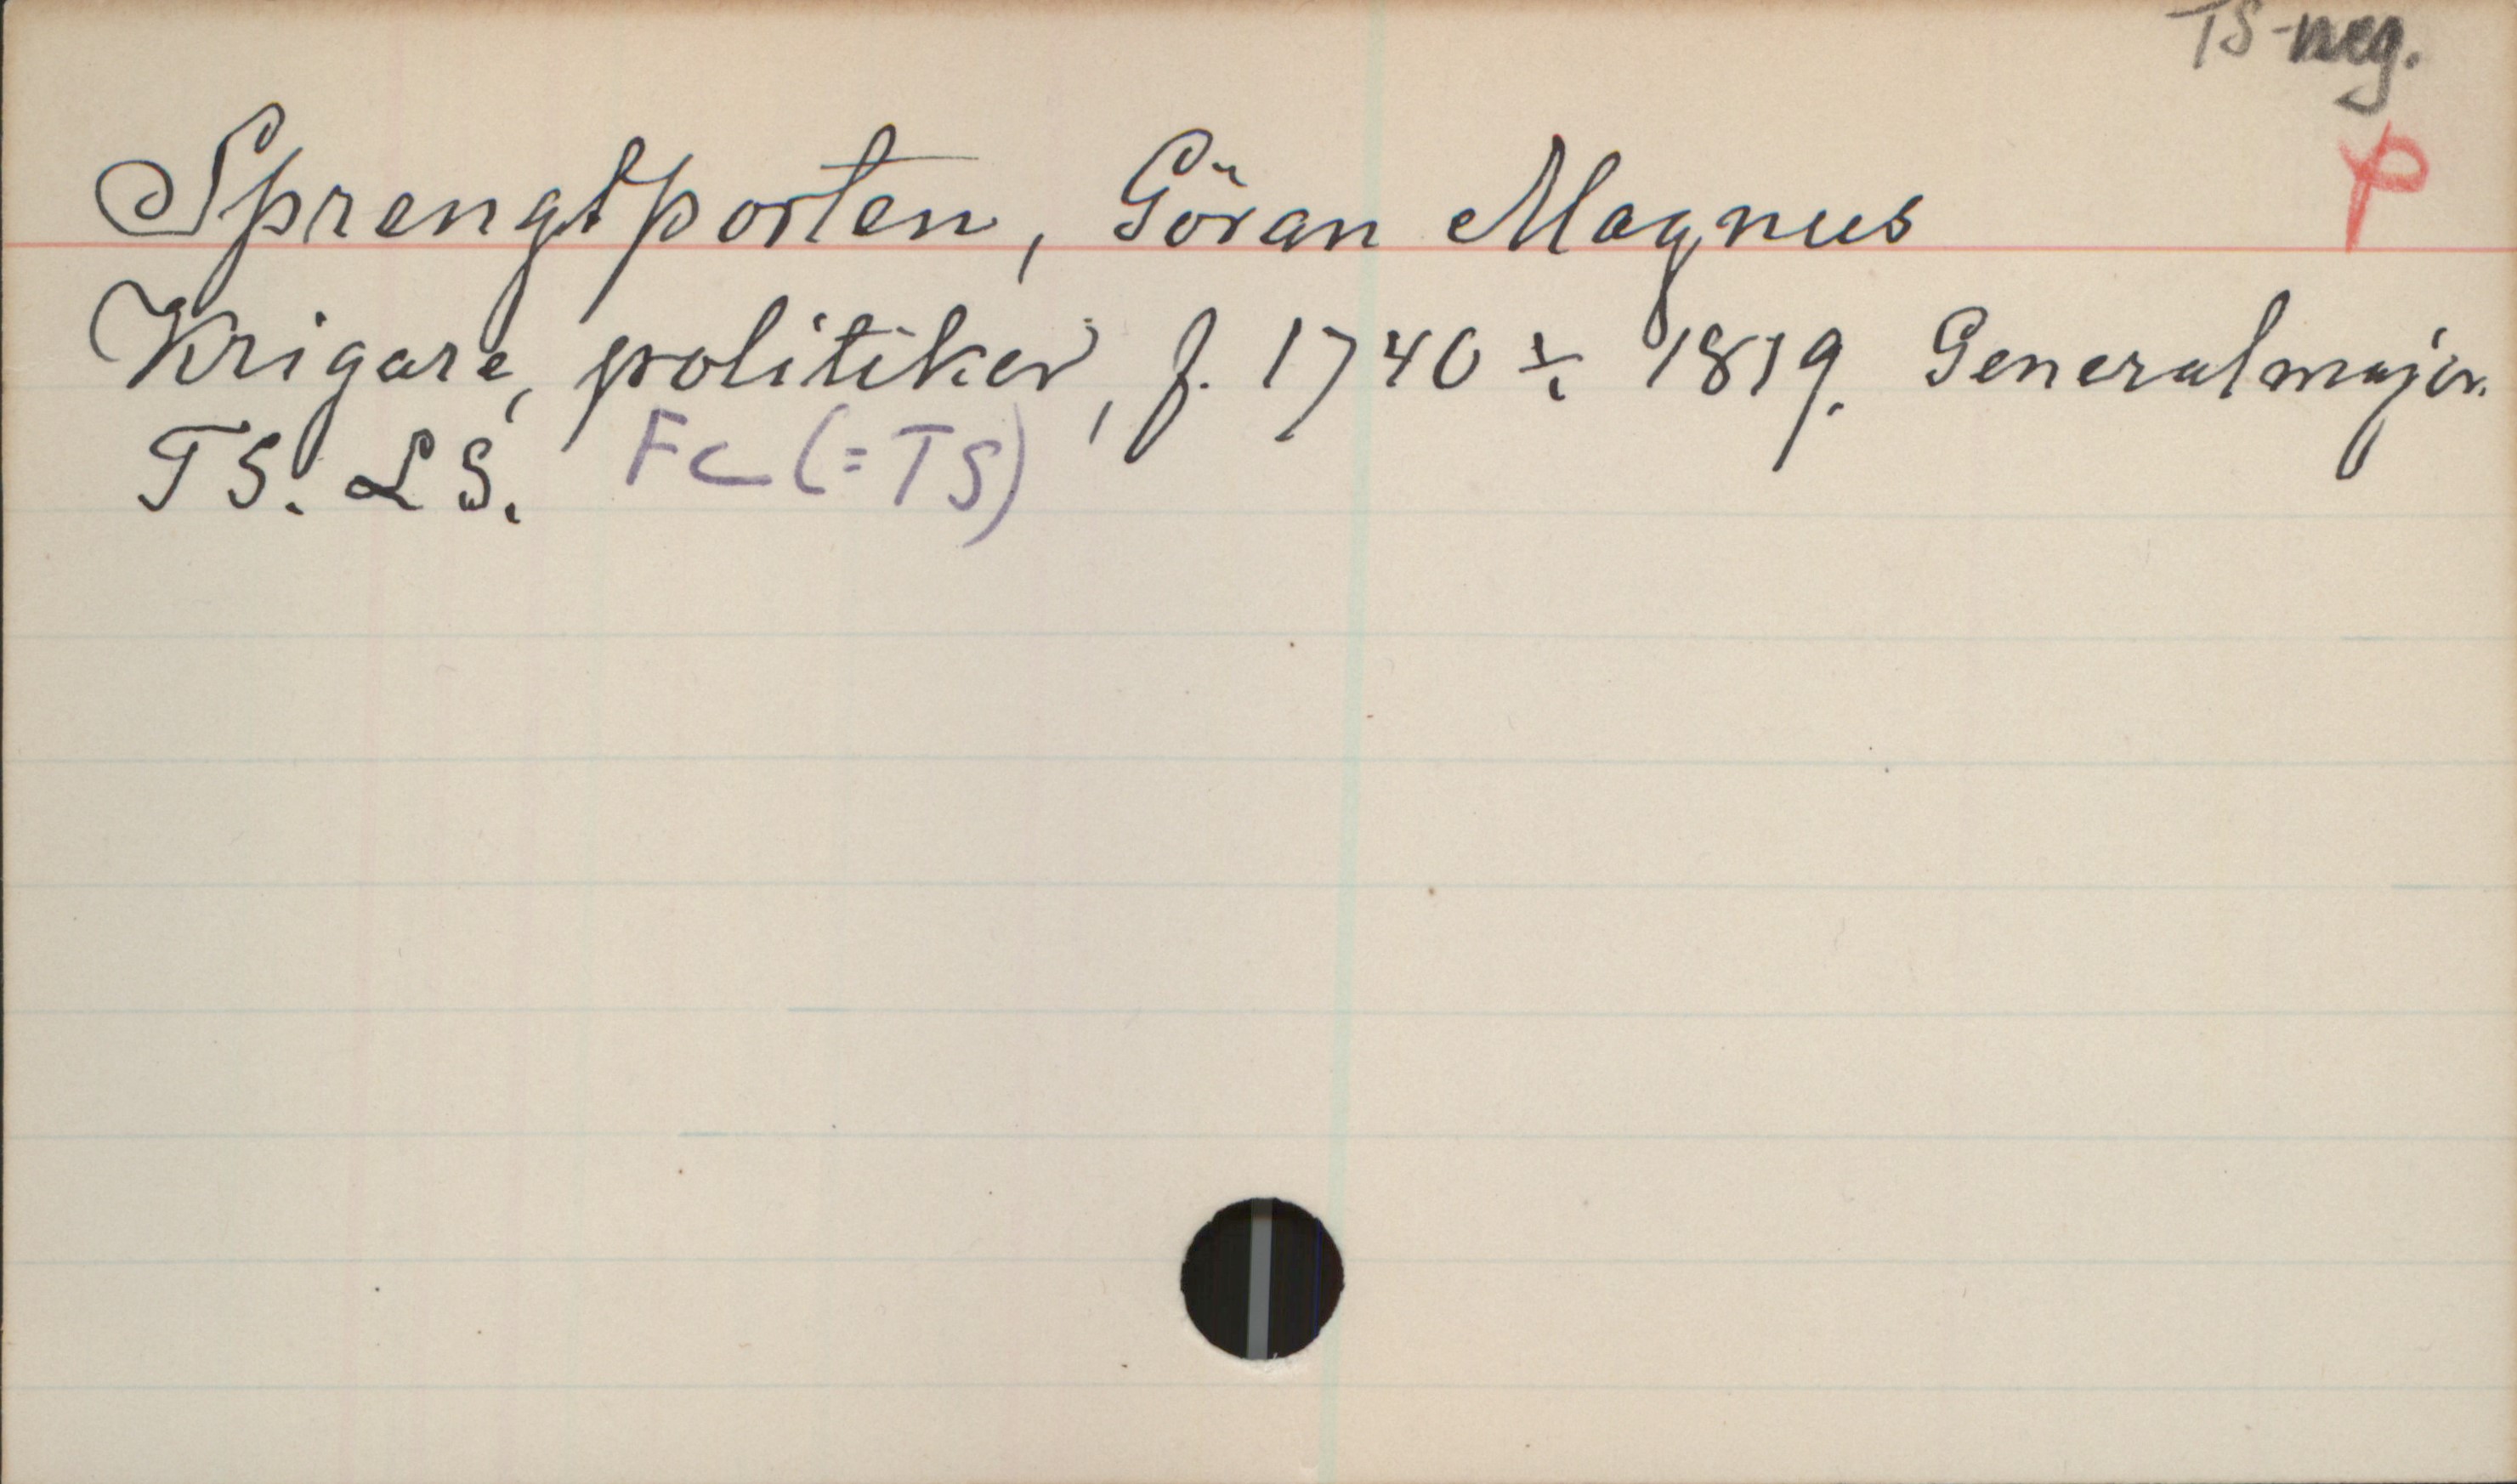 TS-neg.
Sprengtporten, Göran Magnus
p
Krigare, politiker, f. 1740 ÷ 1819. Generalmajor.
TS. LS. Fc (=TS)